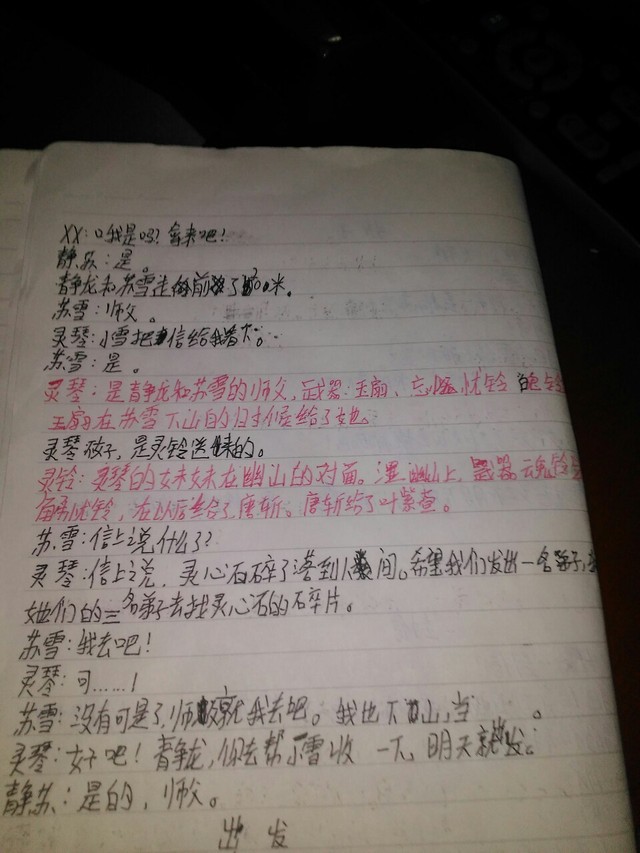 XX:口我是吗?拿来吧!
静苏:是。
青争龙和苏雪走 前 了 00米。
苏雪:师父。
灵琴:小雪把信给我看下。
苏雪:是。
灵琴:是青争龙和苏雪的师父,武器:玉扇、忘 忧铃
玉扇在苏雪下山的时候给了她
灵琴孩子,是灵铃送 的。
灵铃:灵琴的妹妹在幽山的对面。 幽山上,武器魂铃
忧铃,在以后给了唐斩。唐斩给了叶紫 。
苏雪:信上说什么了?
灵琴:信上说,灵心石碎了落到人间。希望我们发出一名弟子,
她们的三名弟子去找灵心石的碎片。
苏雪:我去吧!
灵琴:可……!
苏雪:没有可是了,师 就我去吧。我也下山,当 。
灵琴:好吧!青争龙,你去帮小雪收一下,明天就出发。
静苏:是的,师父。
出发